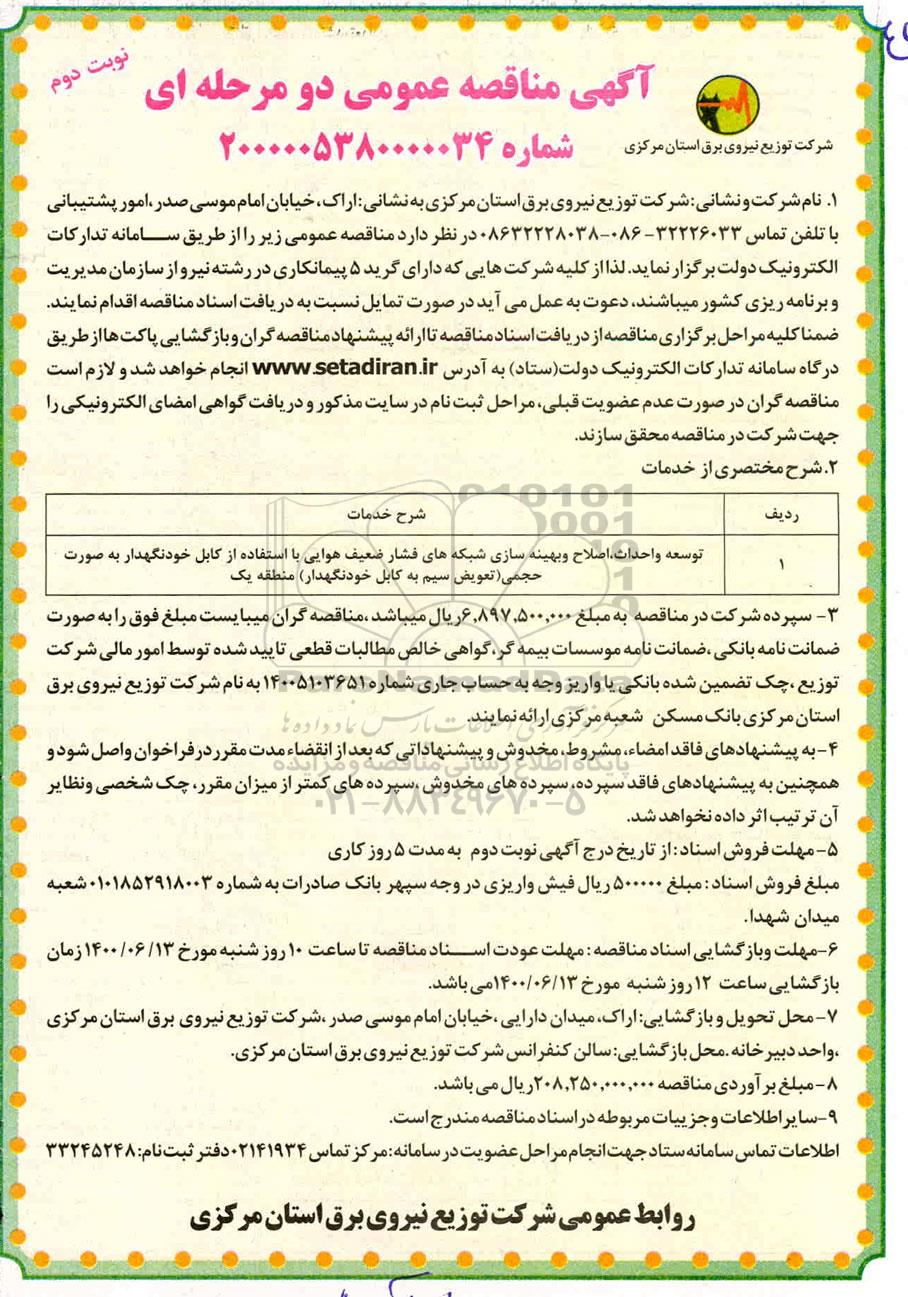 نوبت دوم
آگهی مناقصه عمومی دو مرحله ای
شماره ۲۰۰۰۰۰۵۳۸۰۰۰۰۰۳۴
شرکت توزیع نیروی برق استان مرکزی
۱. نام شرکت و نشانی: شرکت توزیع نیروی برق استان مرکزی به نشانی: اراک، خیابان امام موسی صدر، امور پشتیبانی
با تلفن تماس ۳۲۲۲۶۰۳۳-۰۸۶-۰۸۶۳۲۲۲۸۰۳۸ در نظر دارد مناقصه عمومی زیر را از طریق سامانه تدارکات
الکترونیک دولت برگزار نماید. لذا از کلیه شرکت هایی که دارای گرید ۵ پیمانکاری در رشته نیرو از سازمان مدیریت
و برنامه ریزی کشور میباشند، دعوت به عمل می آید در صورت تمایل نسبت به دریافت اسناد مناقصه اقدام نمایند.
ضمنا کلیه مراحل برگزاری مناقصه از دریافت اسناد مناقصه تا ارائه پیشنهاد مناقصه گران و بازگشایی پاکت ها از طریق
درگاه سامانه تدارکات الکترونیک دولت(ستاد) به آدرس www.setadiran.ir انجام خواهد شد و لازم است
مناقصه گران در صورت عدم عضویت قبلی، مراحل ثبت نام در سایت مذکور و دریافت گواهی امضای الکترونیکی را
جهت شرکت در مناقصه محقق سازند.
۲. شرح مختصری از خدمات
ردیف شرح خدمات
۱ توسعه واحداث،اصلاح وبهینه سازی شبکه های فشار ضعیف هوایی با استفاده از کابل خودنگهدار به صورت
حجمی(تعویض سیم به کابل خودنگهدار) منطقه یک
۳- سپرده شرکت در مناقصه به مبلغ ۶,۸۹۷,۵۰۰,۰۰۰ ریال میباشد ،مناقصه گران میبایست مبلغ فوق را به صورت
ضمانت نامه بانکی ،ضمانت نامه موسسات بیمه گر، گواهی خالص مطالبات قطعی تایید شده توسط امور مالی شرکت
توزیع ،چک تضمین شده بانکی یا واریز وجه به حساب جاری شماره ۱۴۰۰۵۱۰۳۶۵۱ به نام شرکت توزیع نیروی برق
استان مرکزی بانک مسکن شعبه مرکزی ارائه نمایند.
۴- به پیشنهادهای فاقد امضاء، مشروط، مخدوش و پیشنهاداتی که بعد از انقضاء مدت مقرر در فراخوان واصل شود و
همچنین به پیشنهادهای فاقد سپرده، سپرده های مخدوش ،سپرده های کمتر از میزان مقرر، چک شخصی ونظایر
آن ترتیب اثر داده نخواهد شد.
۵- مهلت فروش اسناد: از تاریخ درج آگهی نوبت دوم به مدت ۵ روز کاری
مبلغ فروش اسناد : مبلغ ۵۰۰۰۰۰ ریال فیش واریزی در وجه سپهر بانک صادرات به شماره ۰۱۰۱۸۵۲۹۱۸۰۰۳ شعبه
میدان شهدا.
۶-مهلت وبازگشایی اسناد مناقصه : مهلت عودت اسناد مناقصه تا ساعت ۱۰ روز شنبه مورخ ۱۴۰۰/۰۶/۱۳ زمان
بازگشایی ساعت ۱۲ روز شنبه مورخ ۱۴۰۰/۰۶/۱۳ می باشد.
۷- محل تحویل و بازگشایی: اراک، میدان دارایی ،خیابان امام موسی صدر ،شرکت توزیع نیروی برق استان مرکزی
،واحد دبیرخانه .محل بازگشایی: سالن کنفرانس شرکت توزیع نیروی برق استان مرکزی.
۸- مبلغ برآوردی مناقصه ۲۰۸,۲۵۰,۰۰۰,۰۰۰ ریال می باشد.
۹-سایر اطلاعات و جزییات مربوطه در اسناد مناقصه مندرج است.
اطلاعات تماس سامانه ستاد جهت انجام مراحل عضویت در سامانه: مرکز تماس ۰۲۱۴۱۹۳۴ دفتر ثبت نام: ۳۳۲۴۵۲۴۸
روابط عمومی شرکت توزیع نیروی برق استان مرکزی
پایگاه اطلاع رسانی مناقصه و مزایده
۰۲۱-۸۸۳۴۹۶۷۰-۵